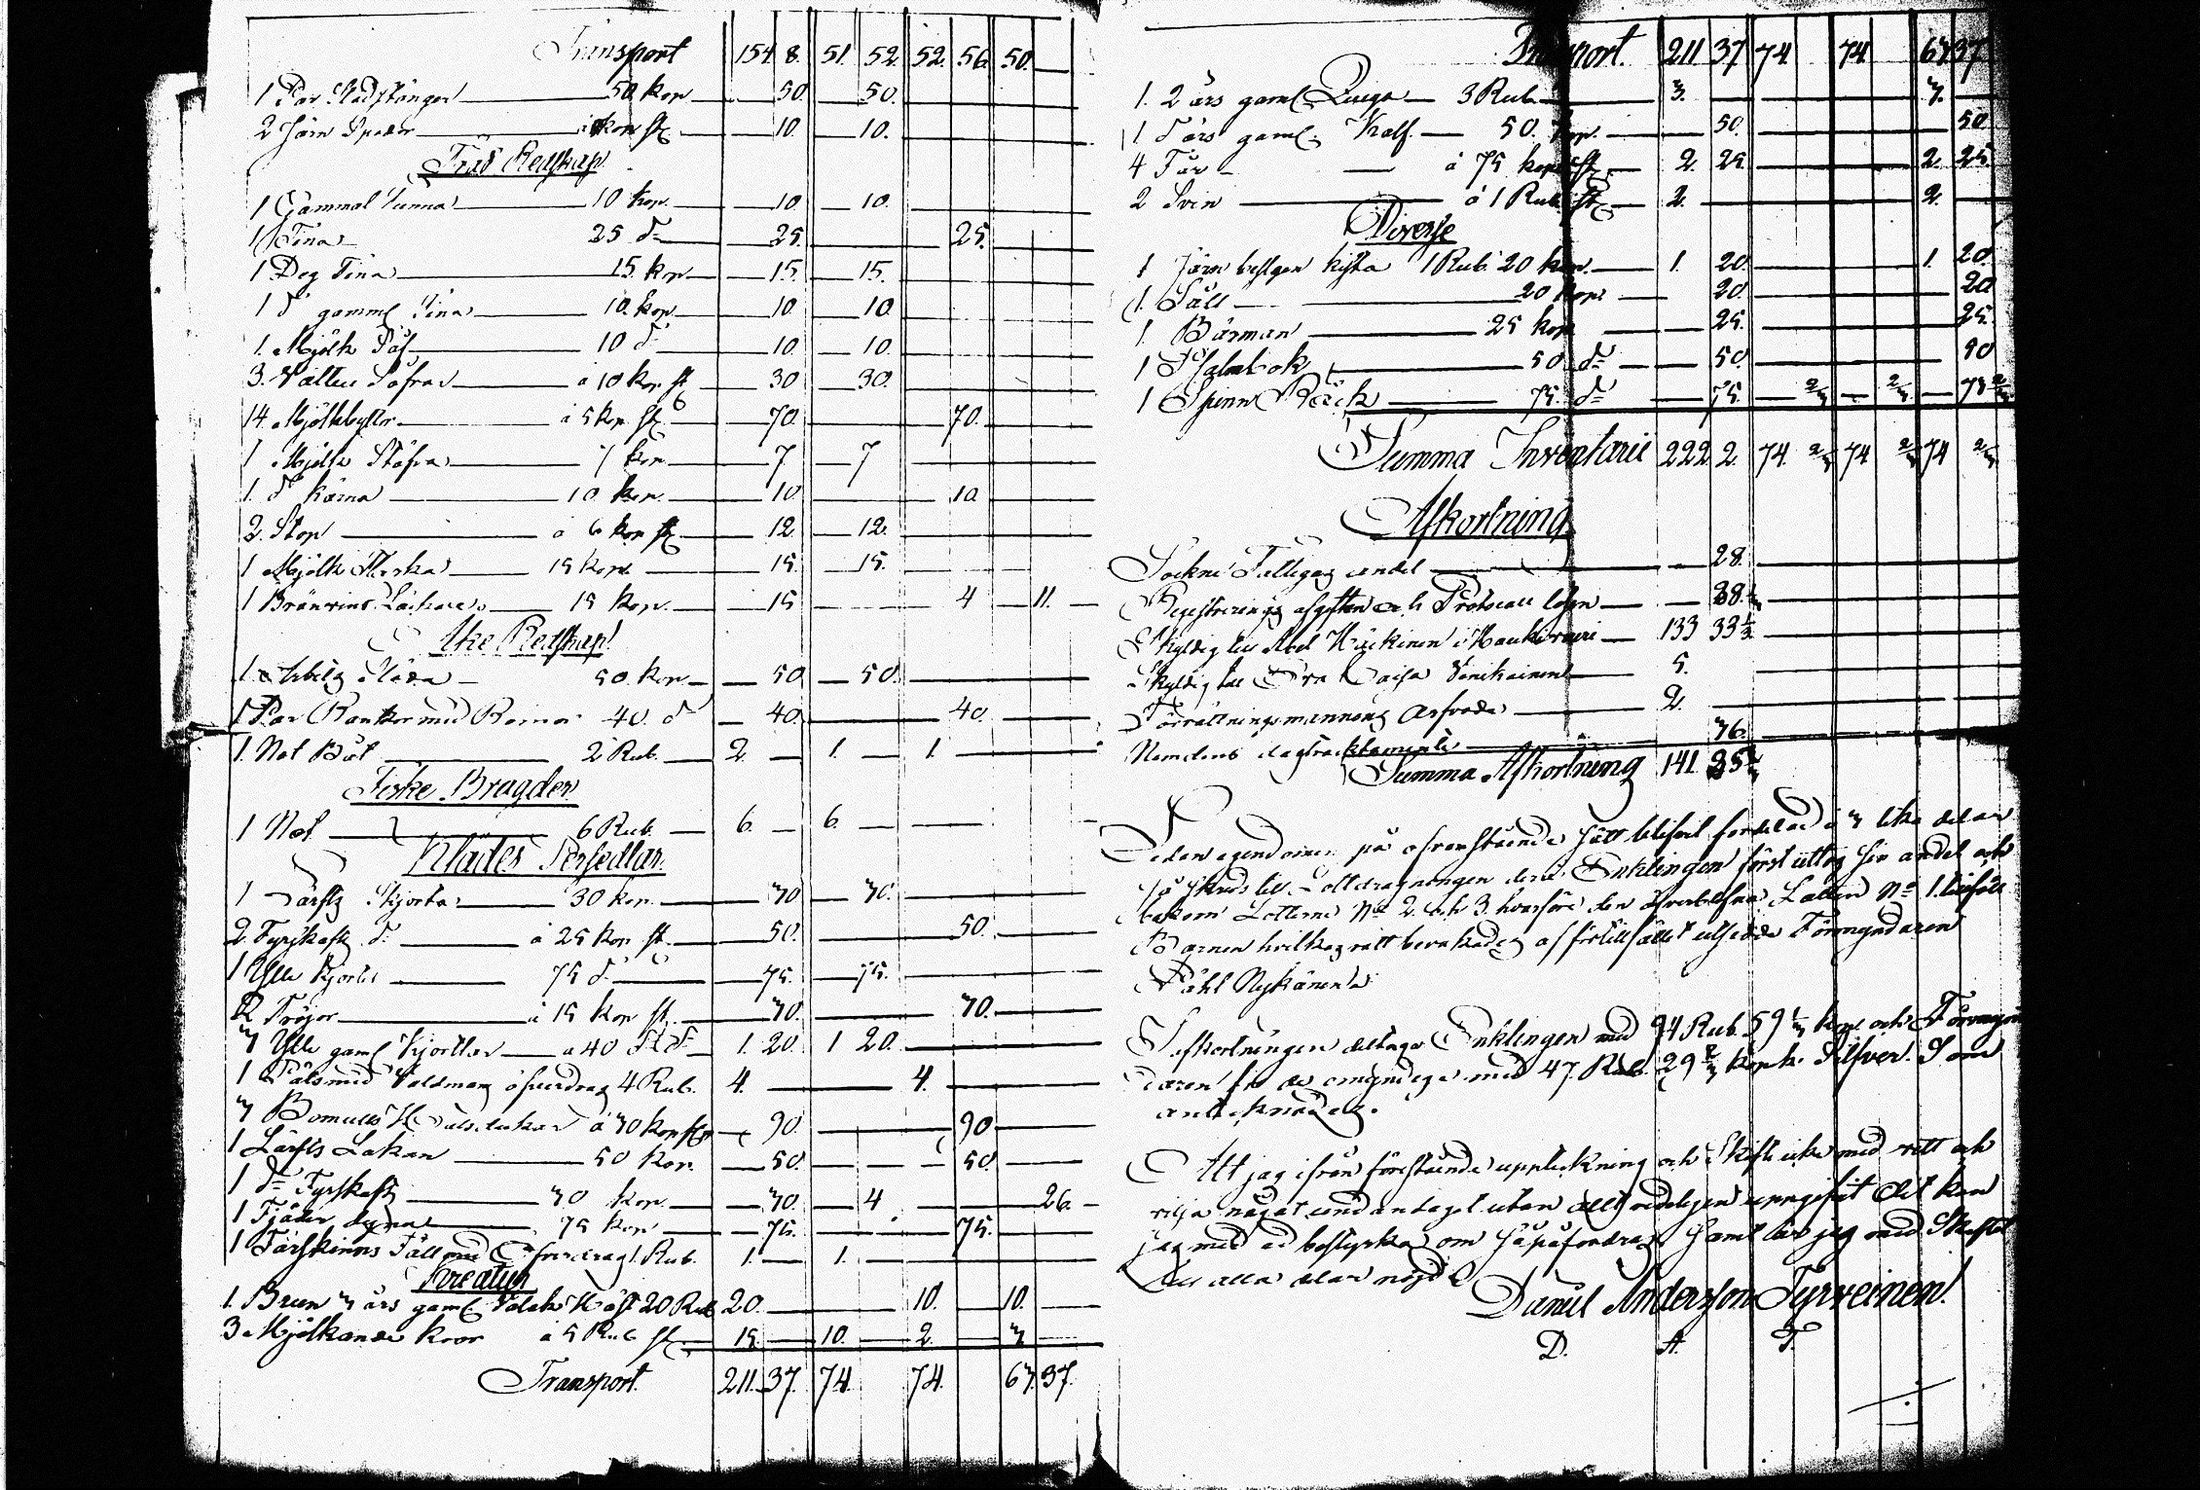 Transport 154 8. 51. 52. 52. 56. 50.
1 Par 50 kop 50. 50.
2 Järn kop st 10. 10.
Träd Redskap
1 Gammal Tunna 10 kop. 10 10.
1 Tina 25 d:o 25. 25.
1 Deg Tina 15 kop 15. 15.
1 d:o gamml Tina 10 kop 10 10.
1. Mjölk 10 d:o 10. 10.
3. Vatten Såfrar à 10 kop st 30 30.
14. Mjölkbyttor à 5 kop st 70. 70.
1 Mjölk Stäfva 7 kop 7 7
1. d:o kärna 10 kop. 10. 10.
2. Stop à 6 kop st 12. 12.
1 Mjölk 15 kop. 15. 15.
1 Bränvins 15 kop. 15 4 11.
Åke Redskap
1. Arbets Släda 50 kop 50. 50.
1 Par 40. d:o 40. 40.
1. Not Båt 2 Rub. 2. 1. 1.
Fiske Bragder
1 Not 6 Rub. 6. 6.
Klädes Persedlar.
1 Lärfts Skjorta 30 kop. 30 30.
2 Fyrskafts d:o à 25 kop st. 50. 50.
1 Ylle Kjortel 75 d:o 75. 75.
2 Tröjor à 15 kop st. 30. 30.
3 Ylle gaml Kjortlar à 40 1. 20. 1 20.
1 Päls med Valdmans öfverdrag 4 Rub. 4. 4.
3 Bomulls Halsdukar à 30 kop st 90. 90
1 Lärfts Lakan 50 kop. 50. 50.
1 d:o Fyrskafts 30 kop. 30. 4 26.
1 Fjäder dyna 75 kop 75. 75.
1 Fårskinns Fäll med Öfverdrag 1 Rub. 1. 1.
Kreatur
1. Brun 3 års gaml Valak Häst 20 Rub 20. 10. 10.
3 Mjölkande kor à 5 Rub st 15. 10. 2. 3
Transport. 211. 37. 74. 74. 63. 37.
Transport. 211 37 74 74 63 37
1. 2 års gaml Quiga 3 Rub. 3. 3.
1 d:o års gaml. Kalf. 50. kop. 50. 50
4 Får à 75 kop st 2. 25. 2. 25
2 Svin à 1 Rub st 2. 2.
Diverse
1 Järn beslgen kista 1 Rub. 20 kop. 1. 20. 1. 20.
1. Såll 20 kop. 20. 20
1. Bärman 25 kop 25. 25.
1 Psalmbok 50 d:o 50. 50
1 Spinn Räck 75. d:o 75. 2/3 2/3 73 2/3
Summa Inventarie 222 2. 74. 2/3 74 2/3 74 2/3
Afkortning
Sockne Fattigas andel 28.
Registrerings afgiften och Protocoll lösen 38.
Skyldig till Abel Häckinen i 133 33 1/3
Skyldig till Eva Caisa 5.
Förrättningsmannens arfvode 2.
Nemdens dagtracktamente 76.
Summa Afkortning 141. 85
Sedan egendomen på ofvanstående sätt blifvit fördelad i 3 lika delar
så skreds till lottdragningen der Enklingen först uttog sin andel och
bekom Lotterne No 2. och 3. hvarföre den öfverblefna Lotten No 1. tillföll
Barnen hvilkas rätt bevakades af för tillfället utsedde Förmyndaren
Påhl Nykänen
I afkortningen deltager Enklingen med 94 Rub. 59 1/3 kop och Förmyn
daren för de omyndige med 47. Rub. 29 2/3 kopek Silfver. Som
antecknades.
Att jag ifrån förestående uppteckning och Skifte icke med vett och
vilja något undandraget utan allt redeligen uppgifvit det kan
jag med ed bestyrka om så påfordras samt är jag med Skiftet
till alla delar nöjd
Daniel Andersson Tyrveinen.
D. A. T.